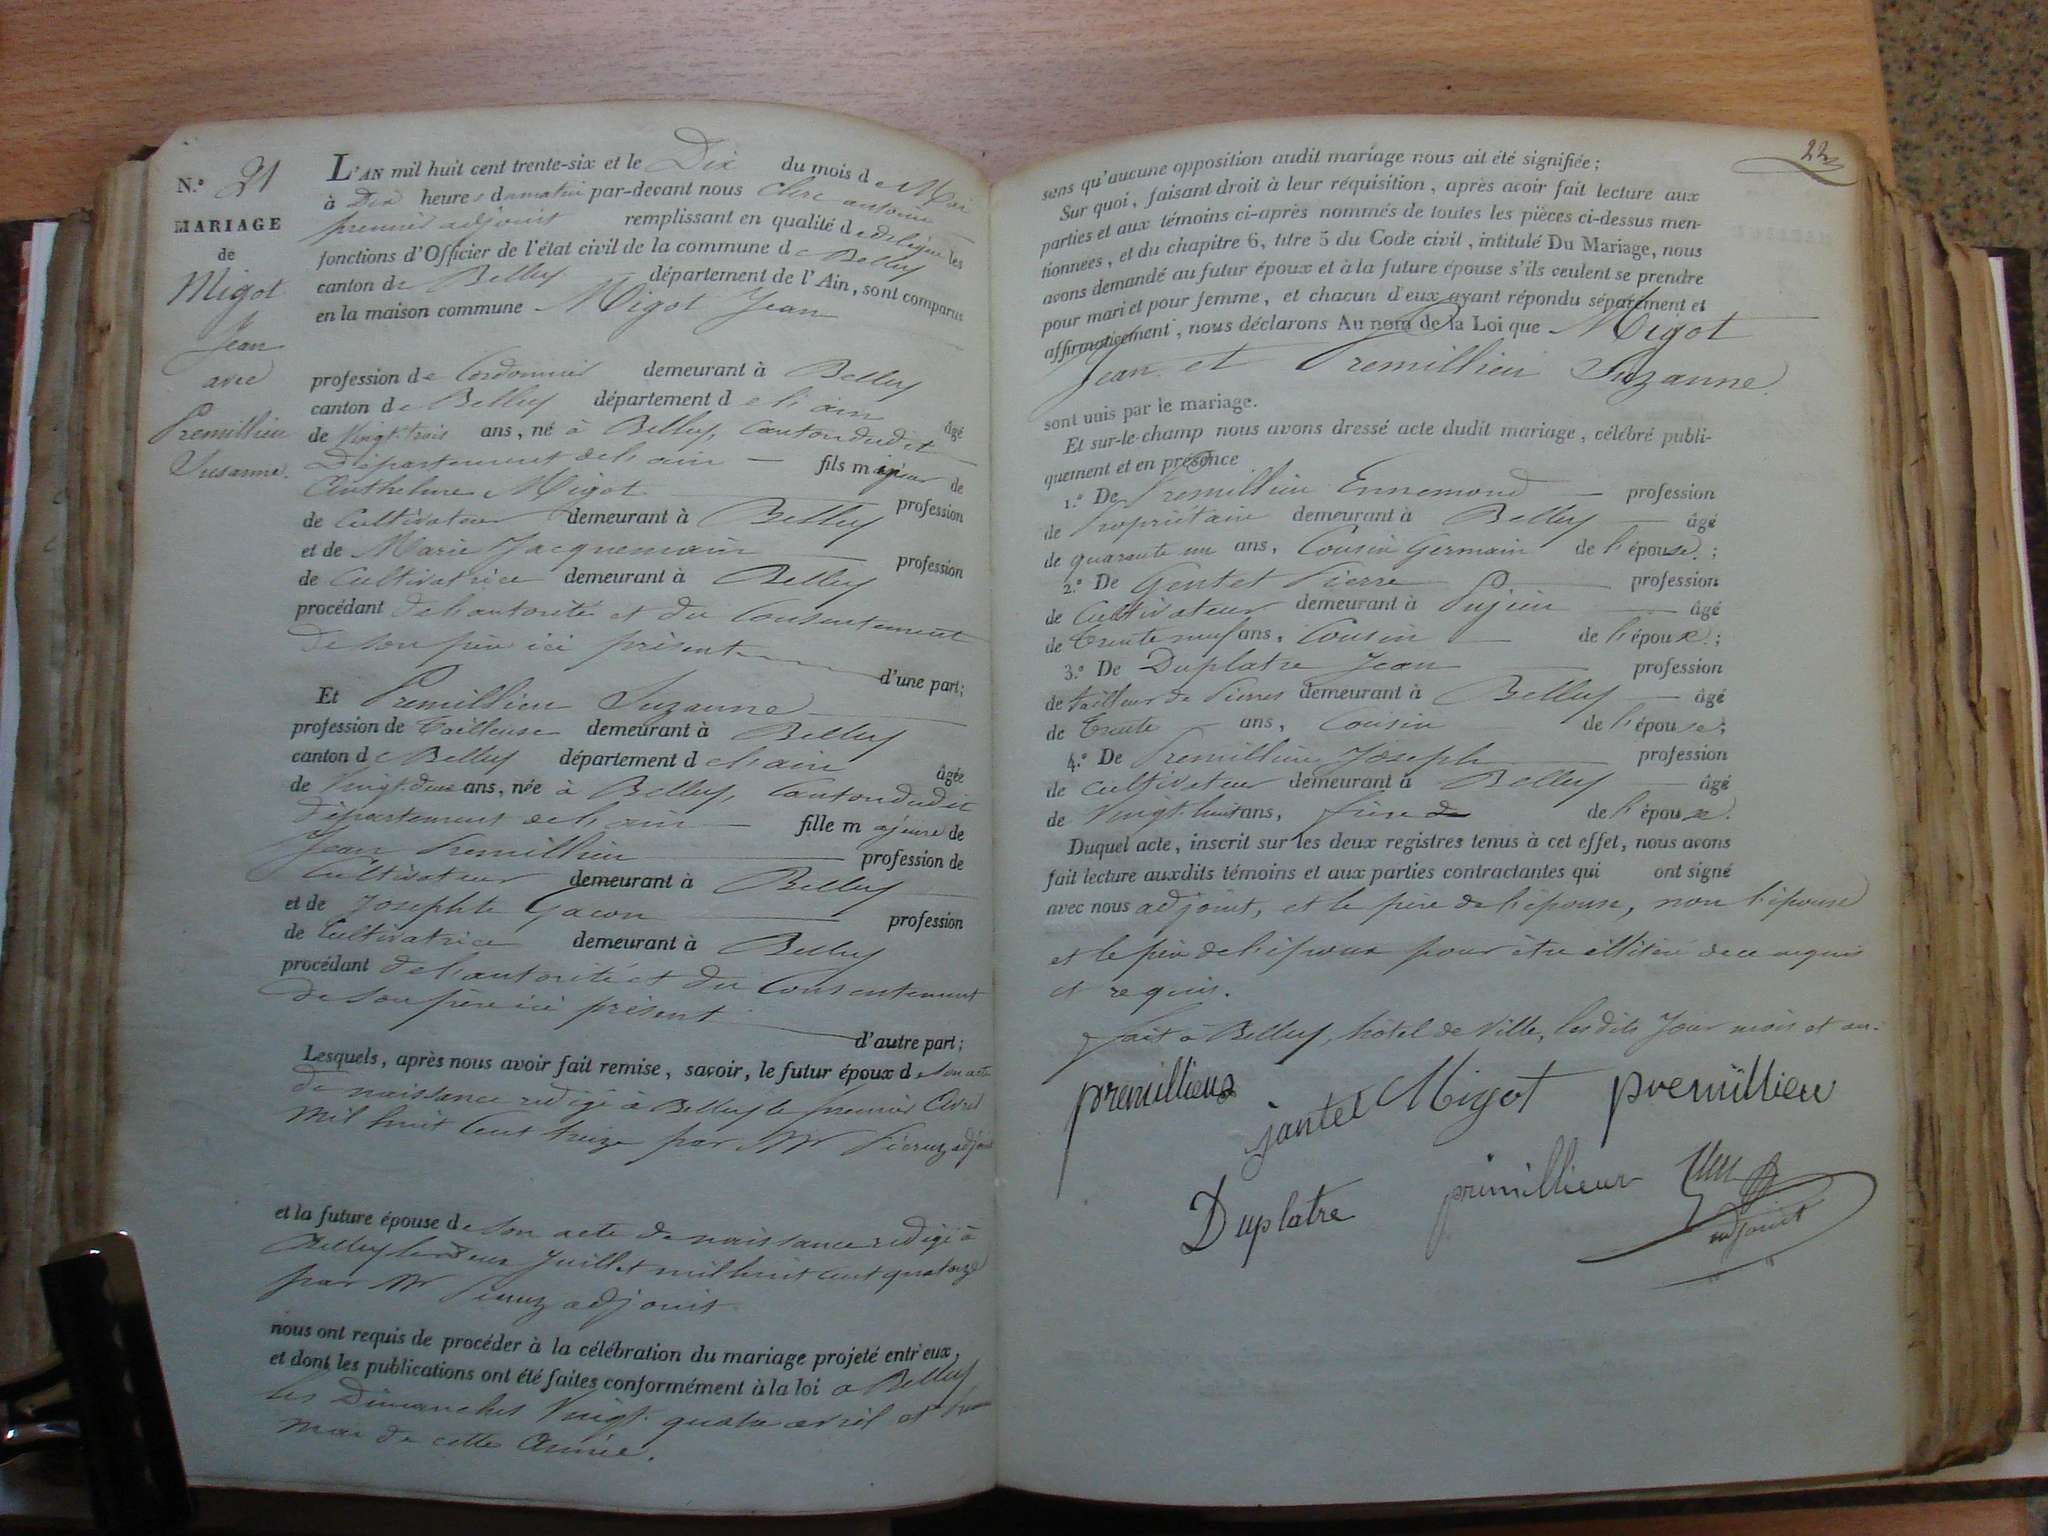 N.º 21
MARIAGE
de
Migot
Jean
avec
Premillieu
Susanne.
L'AN mil huit cent trente-six et le Dix du mois de Mai
à Dix heures du matin par-devant nous Clerc antoine
premier adjoint remplissant en qualité de délégué les
fonctions d'Officier de l'état civil de la commune de Belley
canton de Belley département de l'Ain, sont comparus
en la maison commune Migot Jean
profession de Cordonnier demeurant à Belley
canton de Belley département de l'ain âgé
de Vingt-trois ans, né à Belley, Canton dudit
Département de l'ain fils majeur de
Anthelme Migot profession
de Cultivateur demeurant à Belley
et de Marie Jacquemain profession
de Cultivatrice demeurant à Belley
procédant de l'autorité et du Consentement
de son père ici présent d'une part;
Et Premillieu Suzanne
profession de Tailleuse demeurant à Belley
canton de Belley département de l'ain âgée
de Vingt-deux ans, née à Belley, Canton dudit
département de l'ain fille majeure de
Jean Premillieu profession de
Cultivateur demeurant à Belley
et de Josephte Gacon profession
de Cultivatrice demeurant à Belley
procédant de l'autorité et du Consentement
de son père ici présent d'autre part;
Lesquels, après nous avoir fait remise, savoir, le futur époux de son acte
de naissance redigé à Belley le premier Avril
mil huit Cent treize par Mr adjoint
et la future épouse de son acte de naissance redigé à
Belley le deux Juillet mil huit cent quatorze
par Mr adjoint
nous ont requis de procéder à la célébration du mariage projeté entr'eux,
et dont les publications ont été faites conformément à la loi à Belley
les Dimanches Vingt quatre avril et
mai de cette Année.
22
sans qu'aucune opposition audit mariage nous ait été signifiée;
Sur quoi, faisant droit à leur réquisition, après avoir fait lecture aux
parties et aux témoins ci-après nommés de toutes les pièces ci-dessus men-
tionnées, et du chapitre 6, titre 5 du Code civil, intitulé Du Mariage, nous
avons demandé au futur époux et à la future épouse s'ils veulent se prendre
pour mari et pour femme, et chacun d'eux ayant répondu séparément et
affirmativement, nous déclarons Au nom de la Loi que Migot
Jean et Premillieu Suzanne
sont unis par le mariage.
Et sur-le-champ nous avons dressé acte dudit mariage, célébré publi-
quement et en présence
1.º De Premillieu Ennemond profession
de Propriétaire demeurant à Belley âgé
de quarante un ans, Cousin Germain de l'épouse;
2.º De Gentet Pierre profession
de Cultivateur demeurant à Pugieu âgé
de Trente neuf ans, Cousin de l'épouse;
3.º De Duplatre Jean profession
de tailleur de Pierres demeurant à Belley âgé
de Trente ans, Cousin de l'épouse;
4.º De Premillieu Joseph profession
de Cultivateur demeurant à Belley âgé
de Vingt huit ans, frère de de l'épouse.
Duquel acte, inscrit sur les deux registres tenus à cet effet, nous avons
fait lecture auxdits témoins et aux parties contractantes qui ont signé
avec nous adjoint, et le père de l'épouse, non l'épouse
et le père de l'époux pour être illitéré de ce enquis
et requis.
fait à Belley, hôtel de Ville, les dits Jour mois et an.
premillieux
jantet Migot premillieu
Duplatre primillieux
adjoint